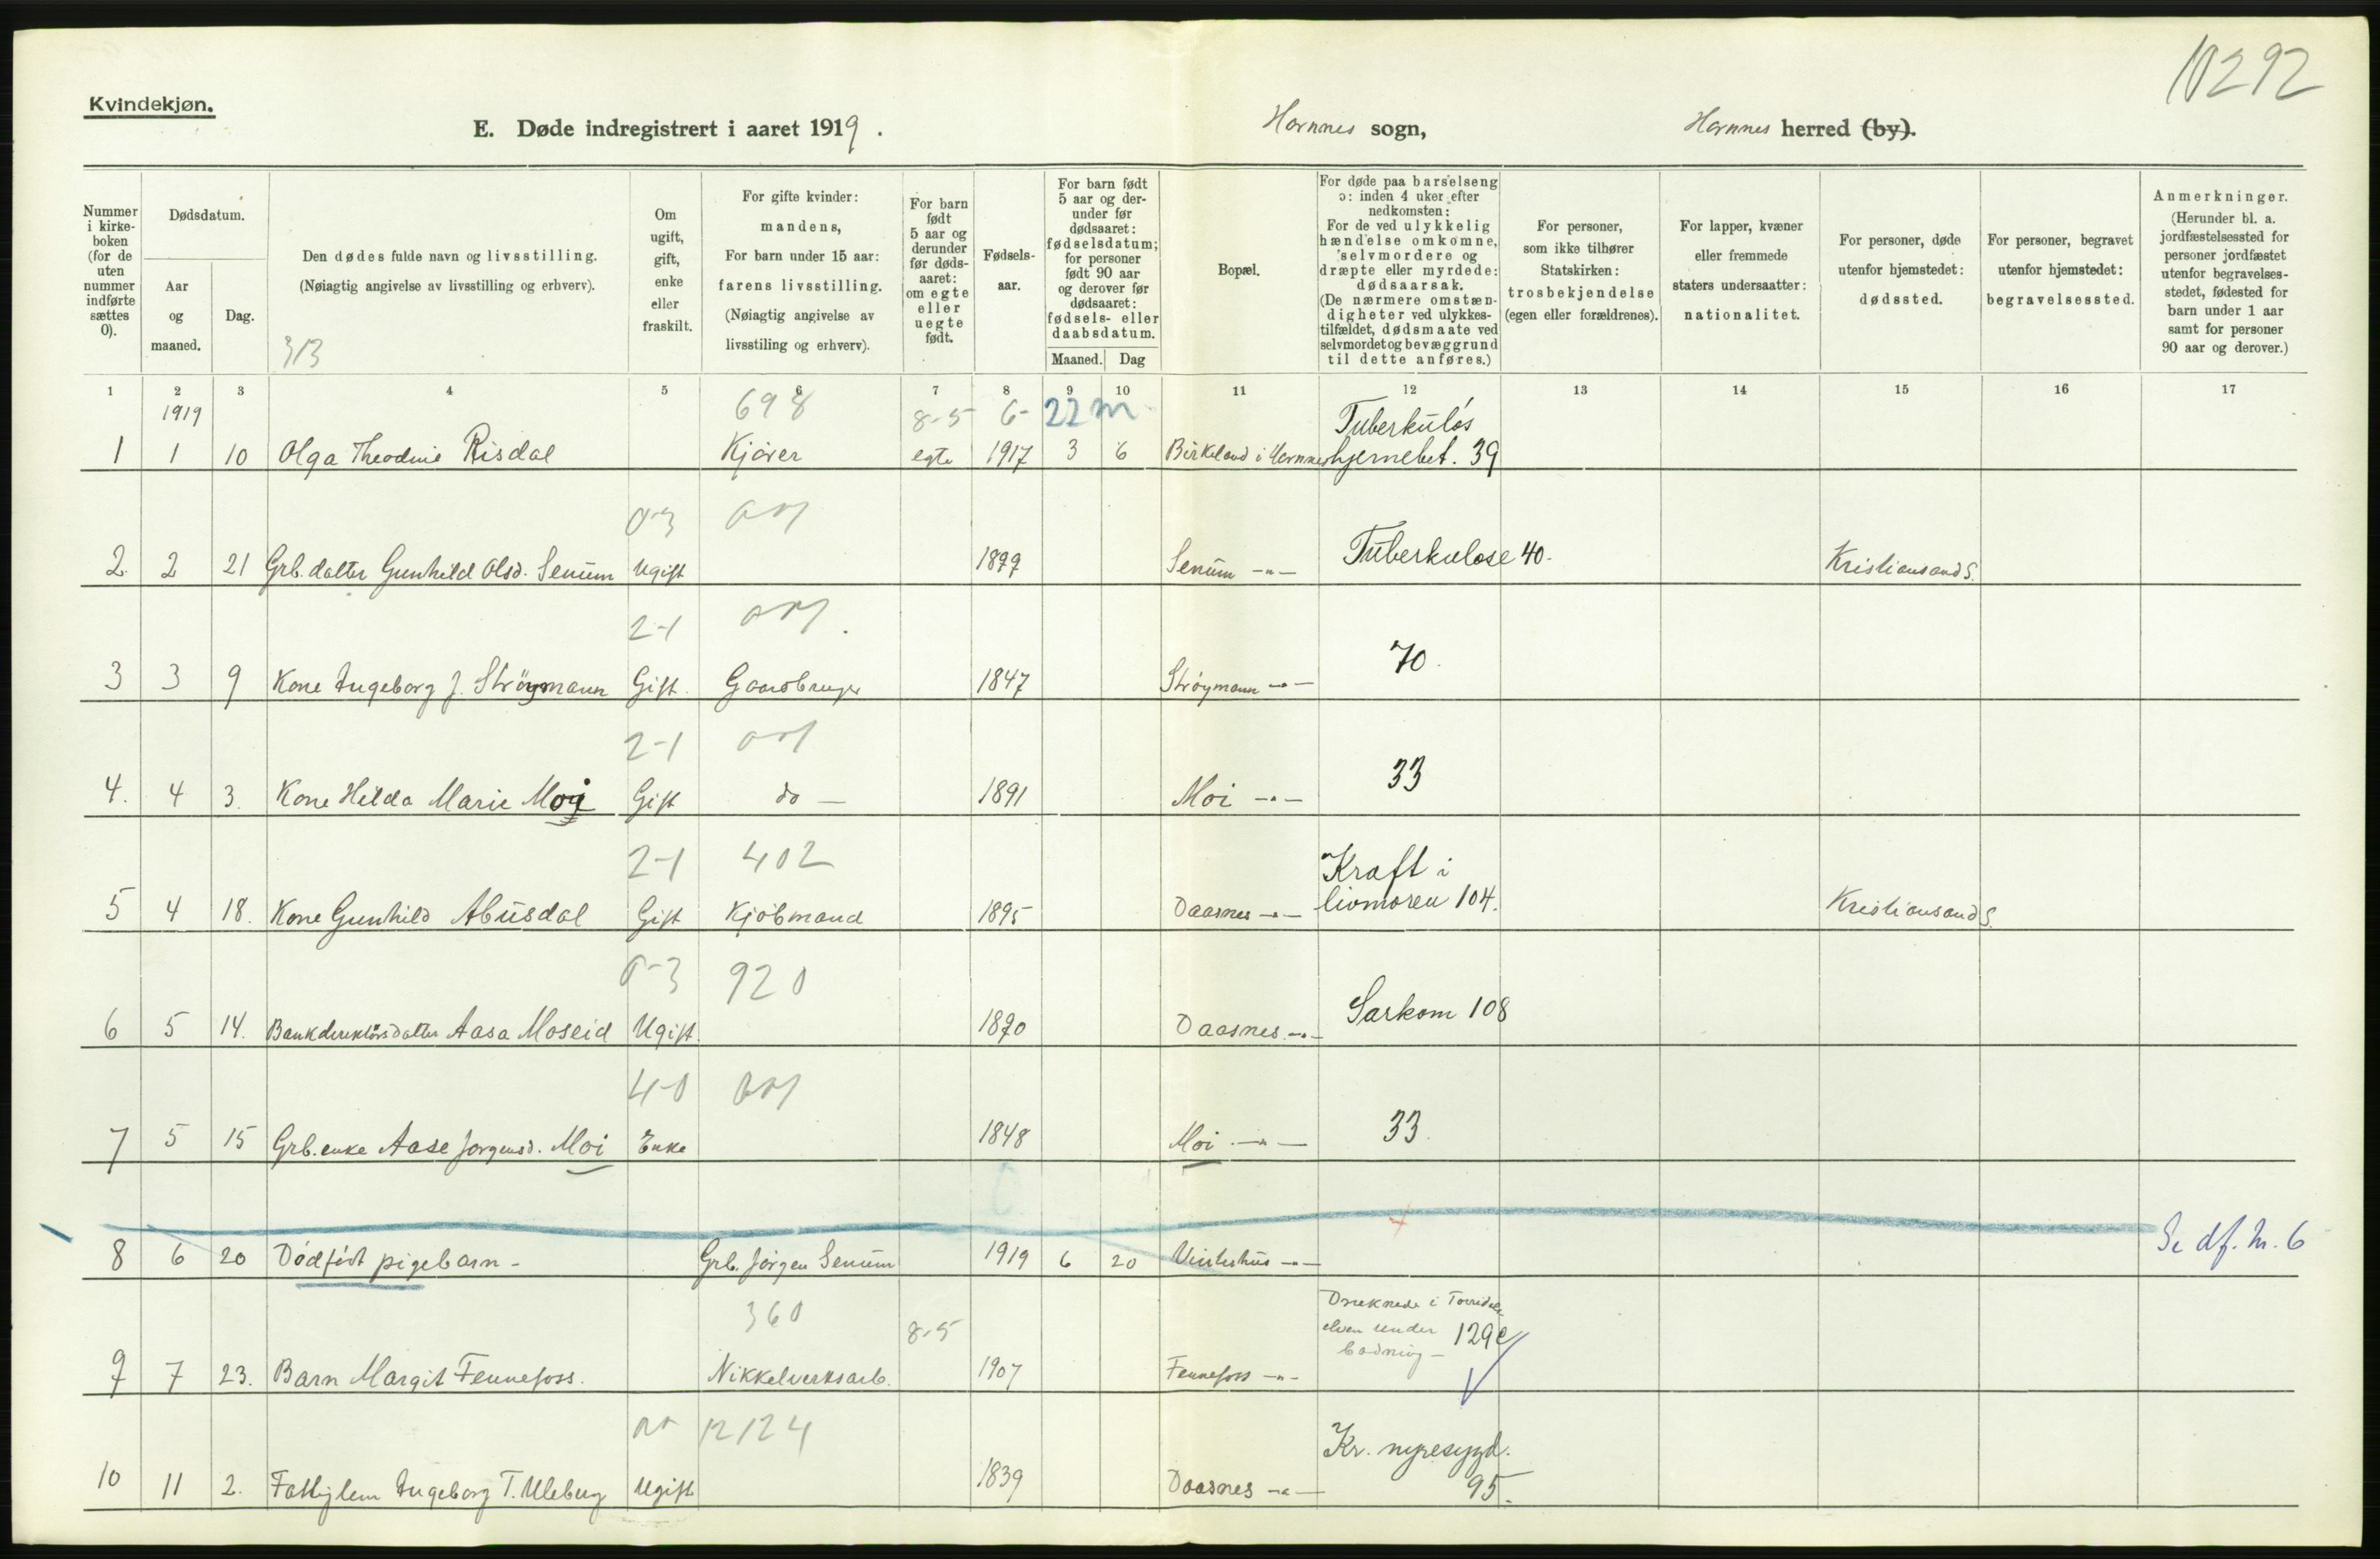 10292
Kvindekjøn.
E. Døde indregistrert i aaret 1919.
Hornnes sogn,
Hornnes herred (by).
Nummer i kirke-boken (for de uten nummer indførte sættes 0).
Dødsdatum.
Aar og maaned.
Dag.
Den dødes fulde navn og livsstilling.
(Nøiagtig angivelse av livsstilling og erhverv).
313
Om ugift, gift, enke eller fraskilt.
For gifte kvinder: mandens,
For barn under 15 aar: farens livsstilling.
(Nøiagtig angivelse av livsstiling og erhverv).
For barn født 5 aar og derunder før døds-aaret: om egte eller uegte født.
Fødsels-aar.
For barn født 5 aar og der-under før dødsaaret: fødselsdatum; for personer født 90 aar og derover før dødsaaret: fødsels- eller daabsdatum.
Maaned.
Dag
Bopæl.
For døde paa barselseng ɔ: inden 4 uker efter nedkomsten:
For de ved ulykkelig hændelse omkomne, selvmordere og dræpte eller myrdede: dødsaarsak.
(De nærmere omstæn-digheter ved ulykkes-tilfældet, dødsmaate ved selvmordet og bevæggrund til dette anføres.)
For personer, som ikke tilhører Statskirken: trosbekjendelse (egen eller forældrenes).
For lapper, kvæner eller fremmede staters undersaatter: nationalitet.
For personer, døde utenfor hjemstedet: dødssted.
For personer, begravet utenfor hjemstedet: begravelsessted.
Anmerkninger.
(Herunder bl. a. jordfæstelsessted for personer jordfæstet utenfor begravelses-stedet, fødested for barn under 1 aar samt for personer 90 aar og derover.)
1 2 3 4 5 6 7 8 9 10 11 12 13 14 15 16 17
1919 698 8-5 6- 22 m Tuberkuløs
1 1 10 Olga Theodine Risdal Kjører egte 1917 3 6 Birkeland i Hornnes hjernebet. 39
0-3
2 2 21 Grb. datter Gunhild Olsd. Senum Ugift 1899 Senum -"- Tuberkulose 40. Kristiansand S.
2-1
3 3 9 Kone Ingeborg J. Strøymann Gift. Gaardbruger 1847 Strøymann -"- 70.
2-1
4. 4 3. Kone Hilda Marie Moi Gift do — 1891 Moi -"- 33
2-1 402 Kraft i
5 4 18. Kone Gunhild Abusdal Gift Kjøbmand 1895 Daasnes -"- livmoren 104. Kristiansand S.
0-3 920
6 5 14. Bankdirektørsdatter Aasa Moseid Ugift. 1890 Daasnes -"- Sarkom 108
4-0
7 5 15 Grb. enke Aase Jørgensd. Moi Enke 1848 Moi -"- 33.
8 6 20 Dødfødt pigebarn - Grb. Jørgen Senum 1919 6 20 -"- Se df. Nr. 6
360 8-5 Druknede i Torridals
elven under 129c
badning -
9 7 23. Barn Margit Fennefoss. Nikkelverksarb. 1907 Fennefoss -"-
12124 Kr. nyresygd.
10 11 2. Fattiglem Ingeborg T. Uleberg Ugift 1839 Daasnes -"- 95.